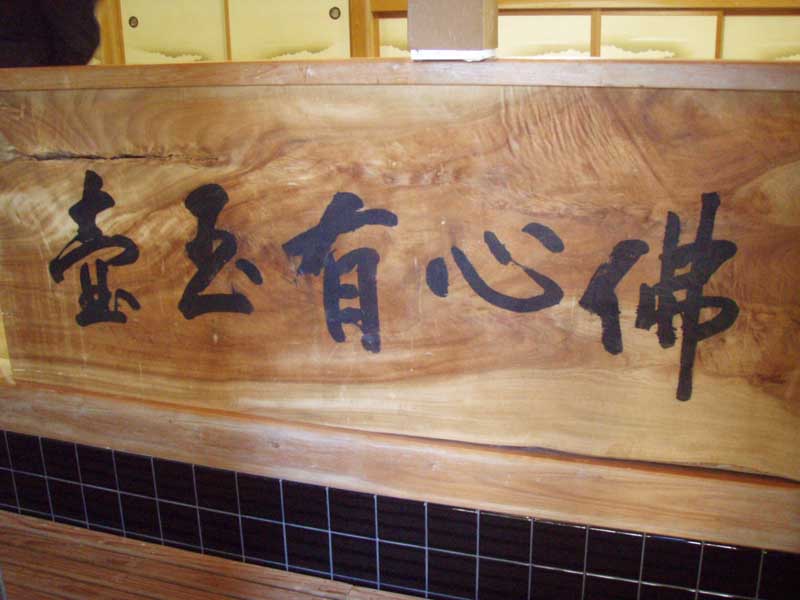 佛心有玉壺